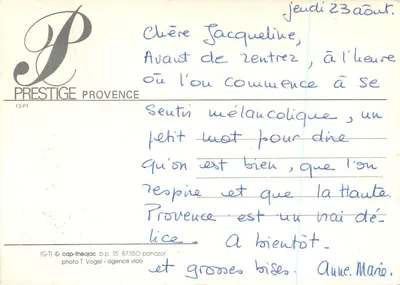 jeudi 23 août.
Chère Jacqueline,
Avant de rentrer, à l'heure
où l'on commence à se
sentir mélancolique, un
petit mot pour dire
qu'on est bien, que l'on
respire et que la Haute
Provence est un vrai dé-
lice. A bientôt.
et grosses bises. Anne-Marie.
P
PRESTIGE PROVENCE
(G-T) © cap-théojac b.p. 15 87350 panazol
photo T. Vogel - agence vloo